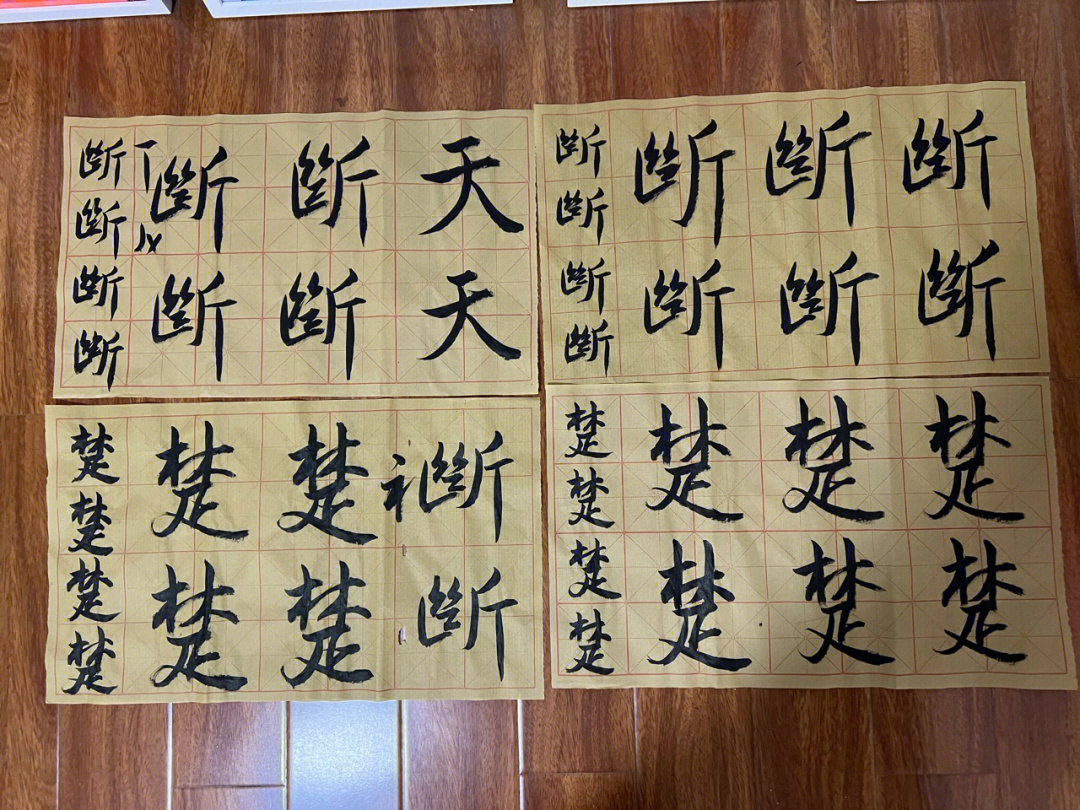 天天
斷斷
斷斷
斷斷斷斷
斷斷
斷斷
斷斷
斷斷斷斷
斷斷
楚楚
楚楚
楚楚楚楚
楚楚
楚楚
楚楚
楚楚楚楚